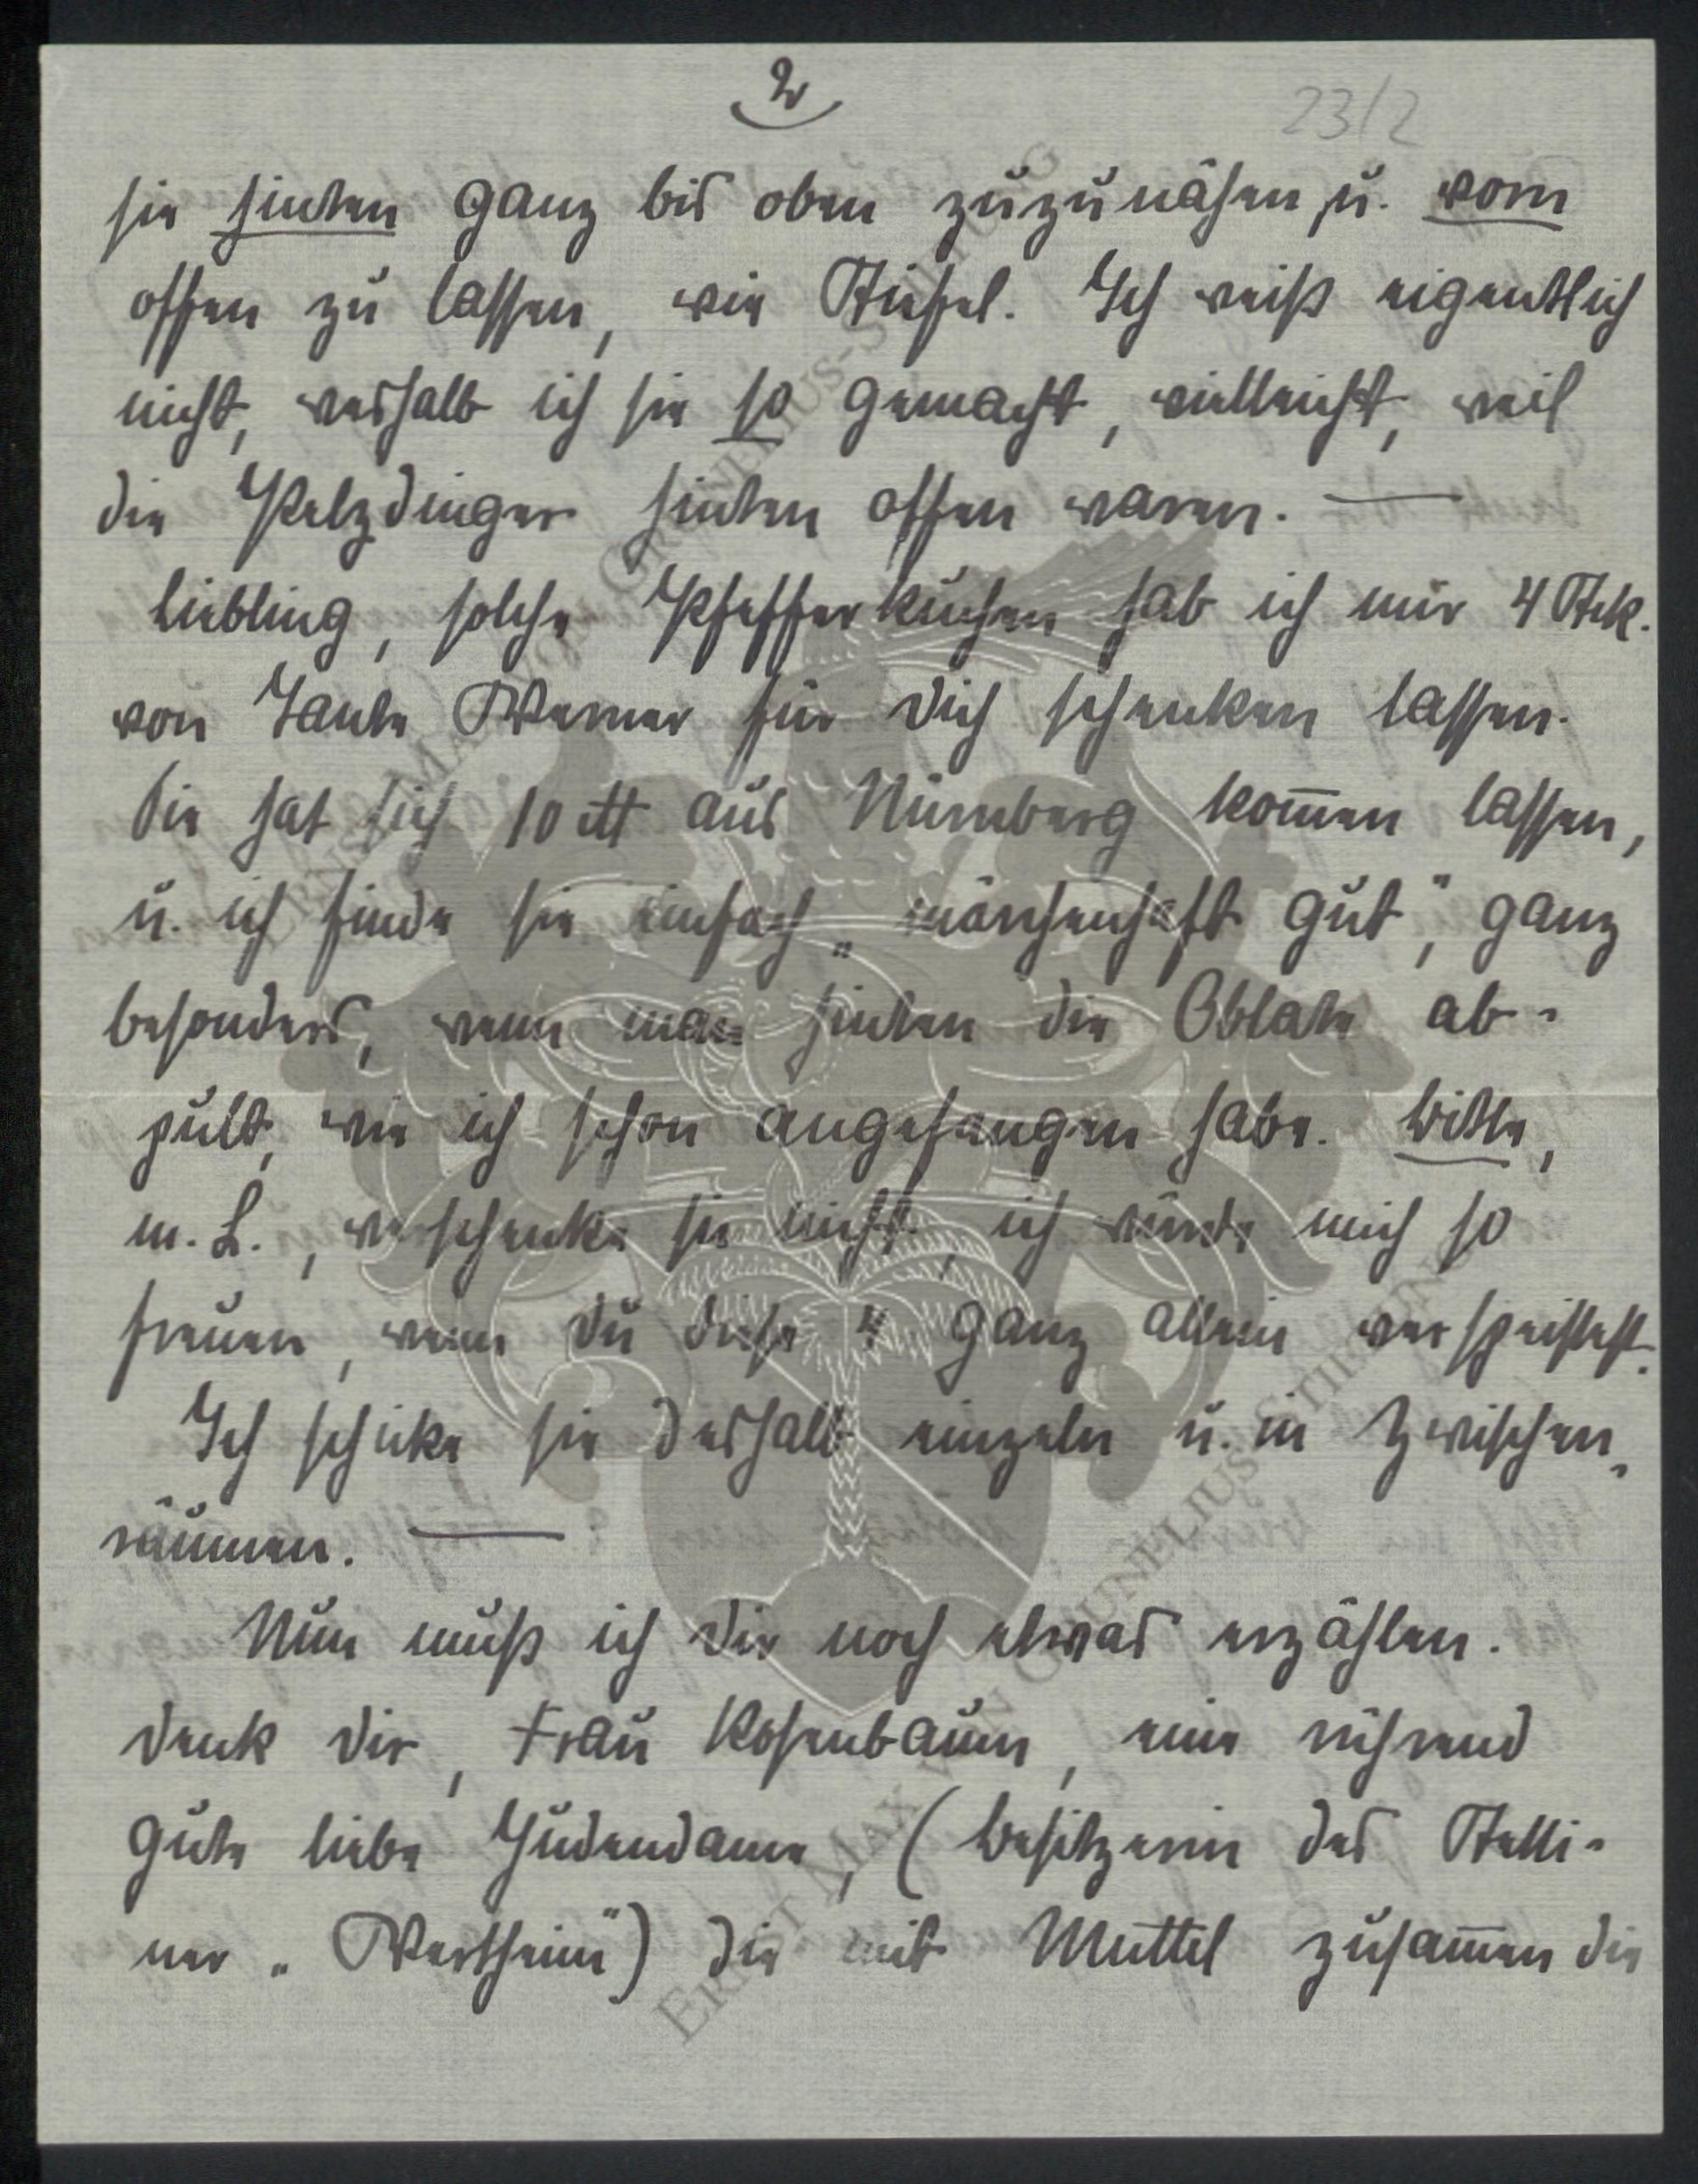 2
23/2
sie hinten ganz bis oben zuzunähen, u. vorn
offen zu lassen, wie Stiefel. Ich weiß eigentlich
nicht, weshalb ich sie so gemacht, vielleicht, weil
die Pelzdinger hinten offen waren. —
Liebling, solche Pfefferkuchen hab ich mir 4 Stck.
von Tante Werner für Dich schenken lassen.
Sie hat sich 10 ℔ aus Nürnberg kom̄en lassen,
u. ich finde sie einfach „märchenhaft gut", ganz
besonders, wenn man hinten die Oblate ab-
pult, wie ich schon angefangen habe. Bitte,
m. L., verschenke sie nicht, ich würde mich so
freuen, wenn Du diese 4 ganz allein verspeistest.
Ich schicke sie deshalb einzeln u. in Zwischen-
räumen. —
Nun muß ich Dir noch etwas erzählen.
Denk Dir, Frau Rosenbaum, eine rührend
gute liebe Judendame, (Besitzerin des Stetti-
ner „Wertheim") die mit Muttel zusam̄en die
ERNST MAX VON GRUNELIUS-STIFTUNG
ERNST MAX VON GRUNELIUS-STIFTUNG